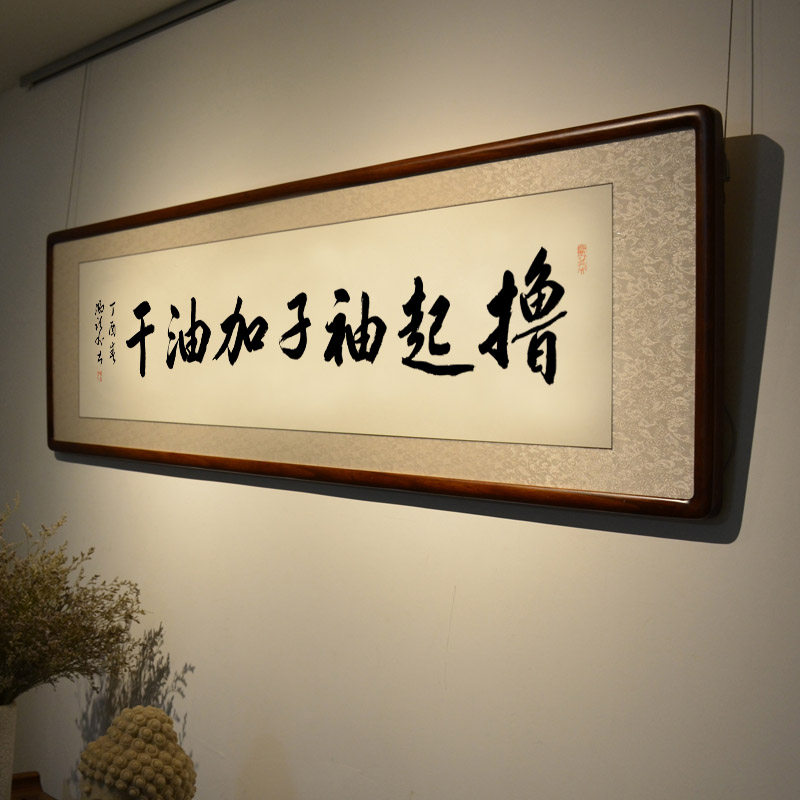 撸起袖子加油干
丁酉岁